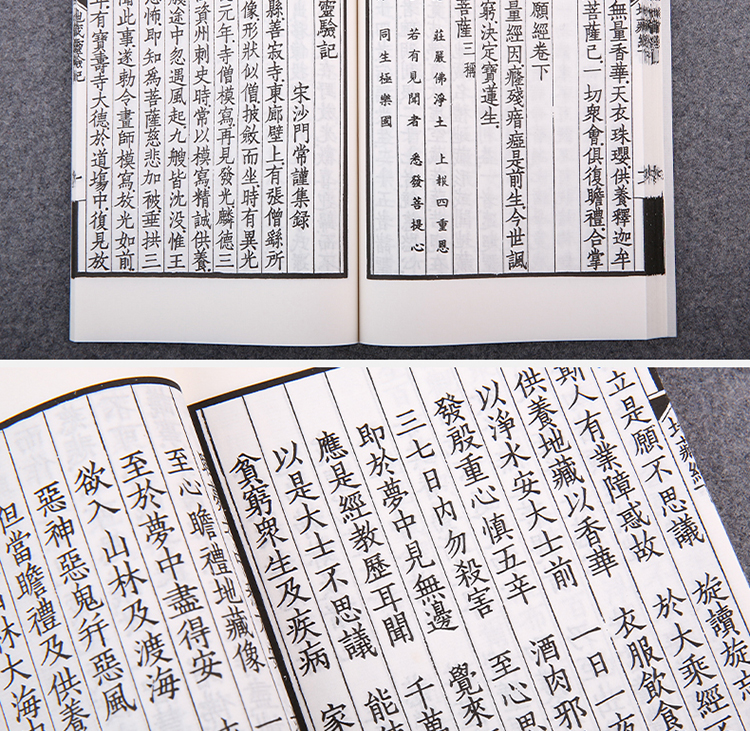 無量香華天衣珠瓔供養釋迦牟
菩薩已一切衆會俱復瞻禮合掌
願經卷下
量經因癡殘瘖瘂是前生今世諷
窮決定寶蓮生
菩薩三稱
莊嚴佛淨土 上報四重恩
若有見聞者 悉發菩提心
同生極樂國
靈驗記
宋沙門常謹集錄
縣善寂寺東廊壁上有張僧繇所
像形狀似僧披斂而坐時有異光
元年寺僧模寫再見發光麟德三
資州刺史時常以模寫精誠供養
途中忽遇風起九艘皆沈没惟王
怖即知為菩薩慈悲加被垂拱三
聞此事遂敕令畫師模寫放光如前
年有寶壽寺大德於道塲中復見放
驗記
地藏經
立是願不思議 旋讀旋
斯人有業障惑故 於大乘經
供養地藏以香華 衣服飲食
以淨水安大士前 一日一夜
發殷重心慎五辛 酒肉邪
三七日內勿殺害 至心思
即於夢中見無邊 覺來
應是經教歷耳聞 千萬
以是大士不思議 能
貧窮衆生及疾病 家
至心瞻禮地藏像 一
至於夢中盡得安
欲入山林及渡海
惡神惡鬼并惡風
但當瞻禮及供養
山林大海中